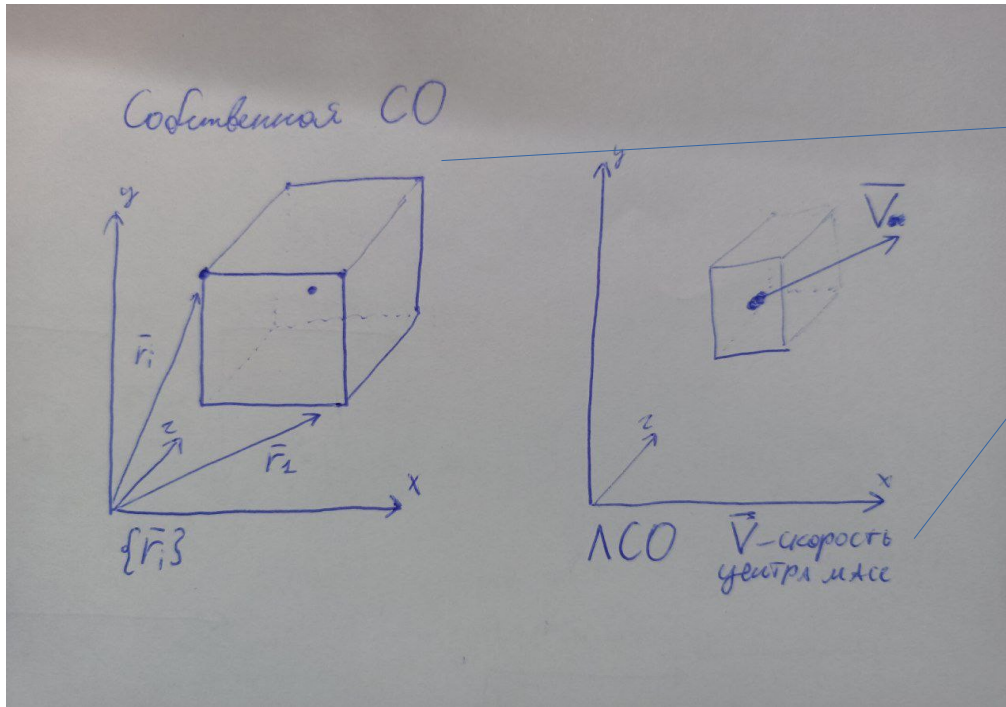 Собственная СО
y
r̄ᵢ
z
r̄₁
x
{r̄ᵢ}
y
V̄
z
x
ЛСО
V⃗ - скорость
центра масс